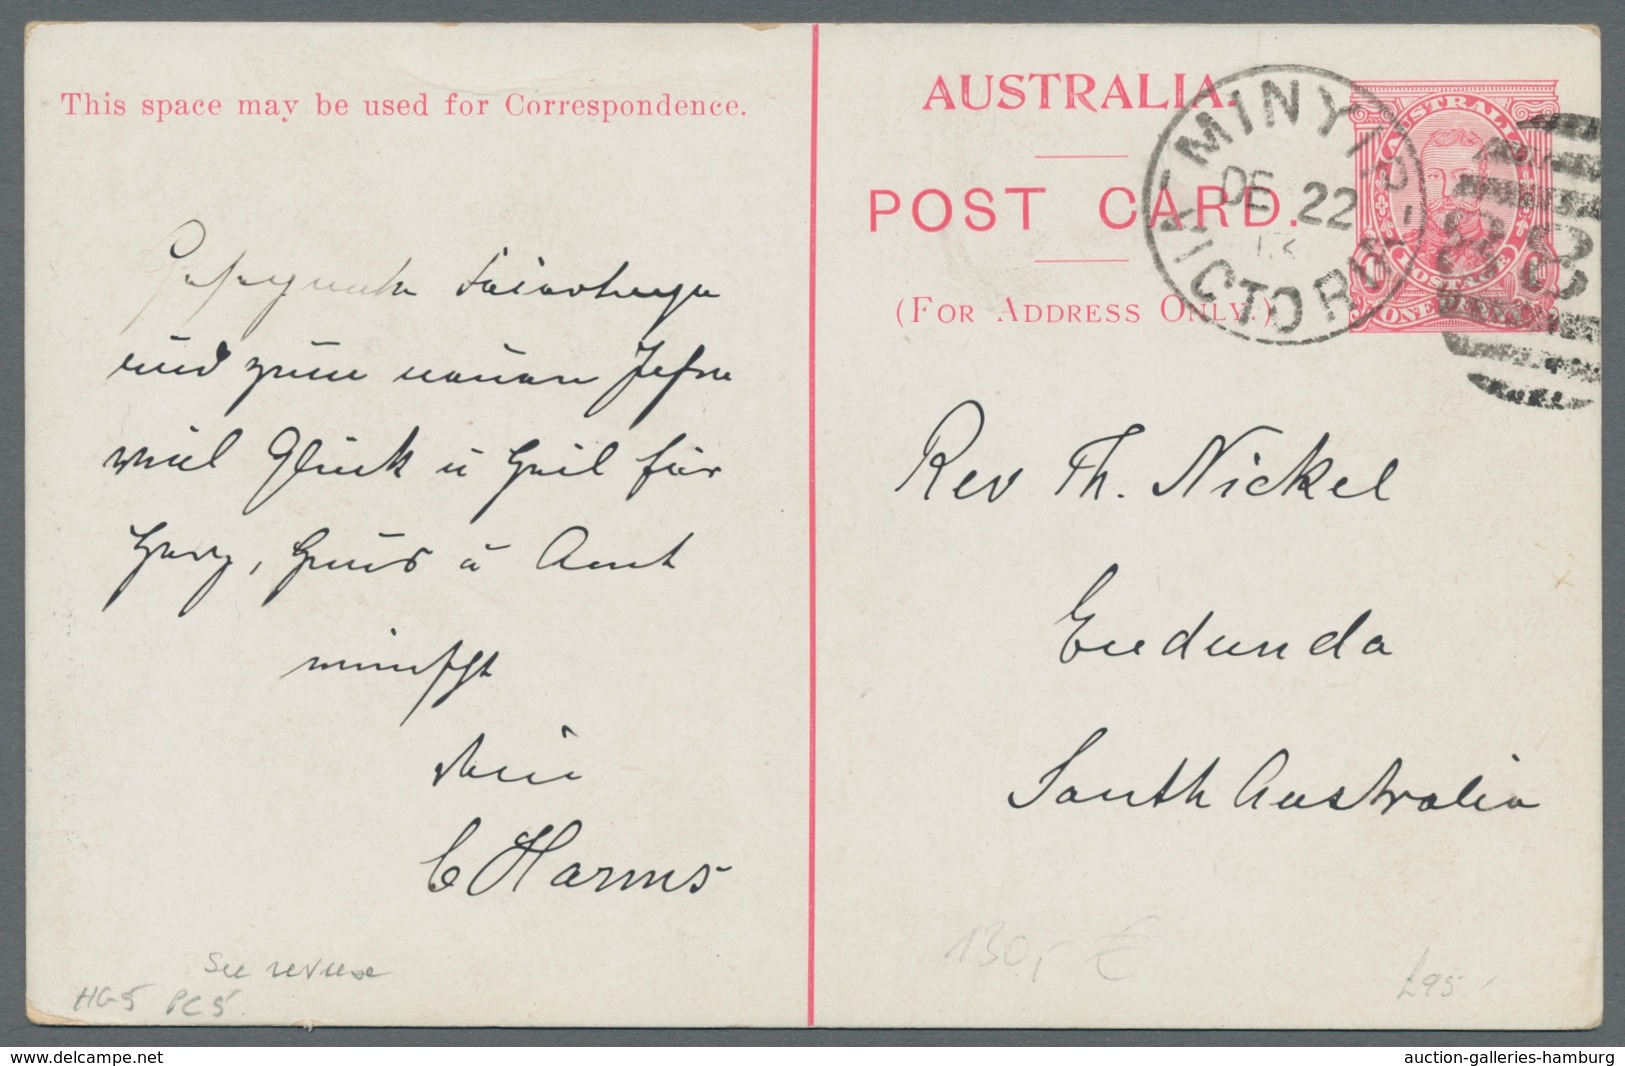 This space may be used for Correspondence.
Gesegnete Feiertage
und zum neuen Jahre
viel Glück u Heil für
Herz, Haus u Amt
wünscht
Dein
C Harms
See reverse
HG5 PC5
AUSTRALIA.
POST CARD.
(FOR ADDRESS ONLY.)
MINYIP
DE 22
13
VICTORIA
AUSTRALIA
POSTAGE
ONE
Rev Th. Nickel
Eudunda
South Australia
130,- €
£95
www.delcampe.net
auction-galleries-hamburg